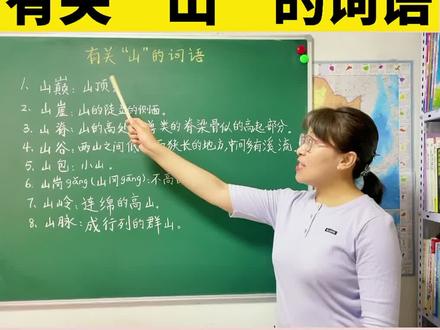 有关“山”的词语
有关“山”的词语
1、山巅：山顶
2、山崖：山的陡立的侧面。
3、山脊：山的高处 兽类的脊梁骨似的高起部分。
4、山谷：两山之间低 而狭长的地方，中间多有溪流
5、山包：小山。
6、山岗gǎng(山冈gāng)：不高的
7、山岭：连绵的高山。
8、山脉：成行列的群山。